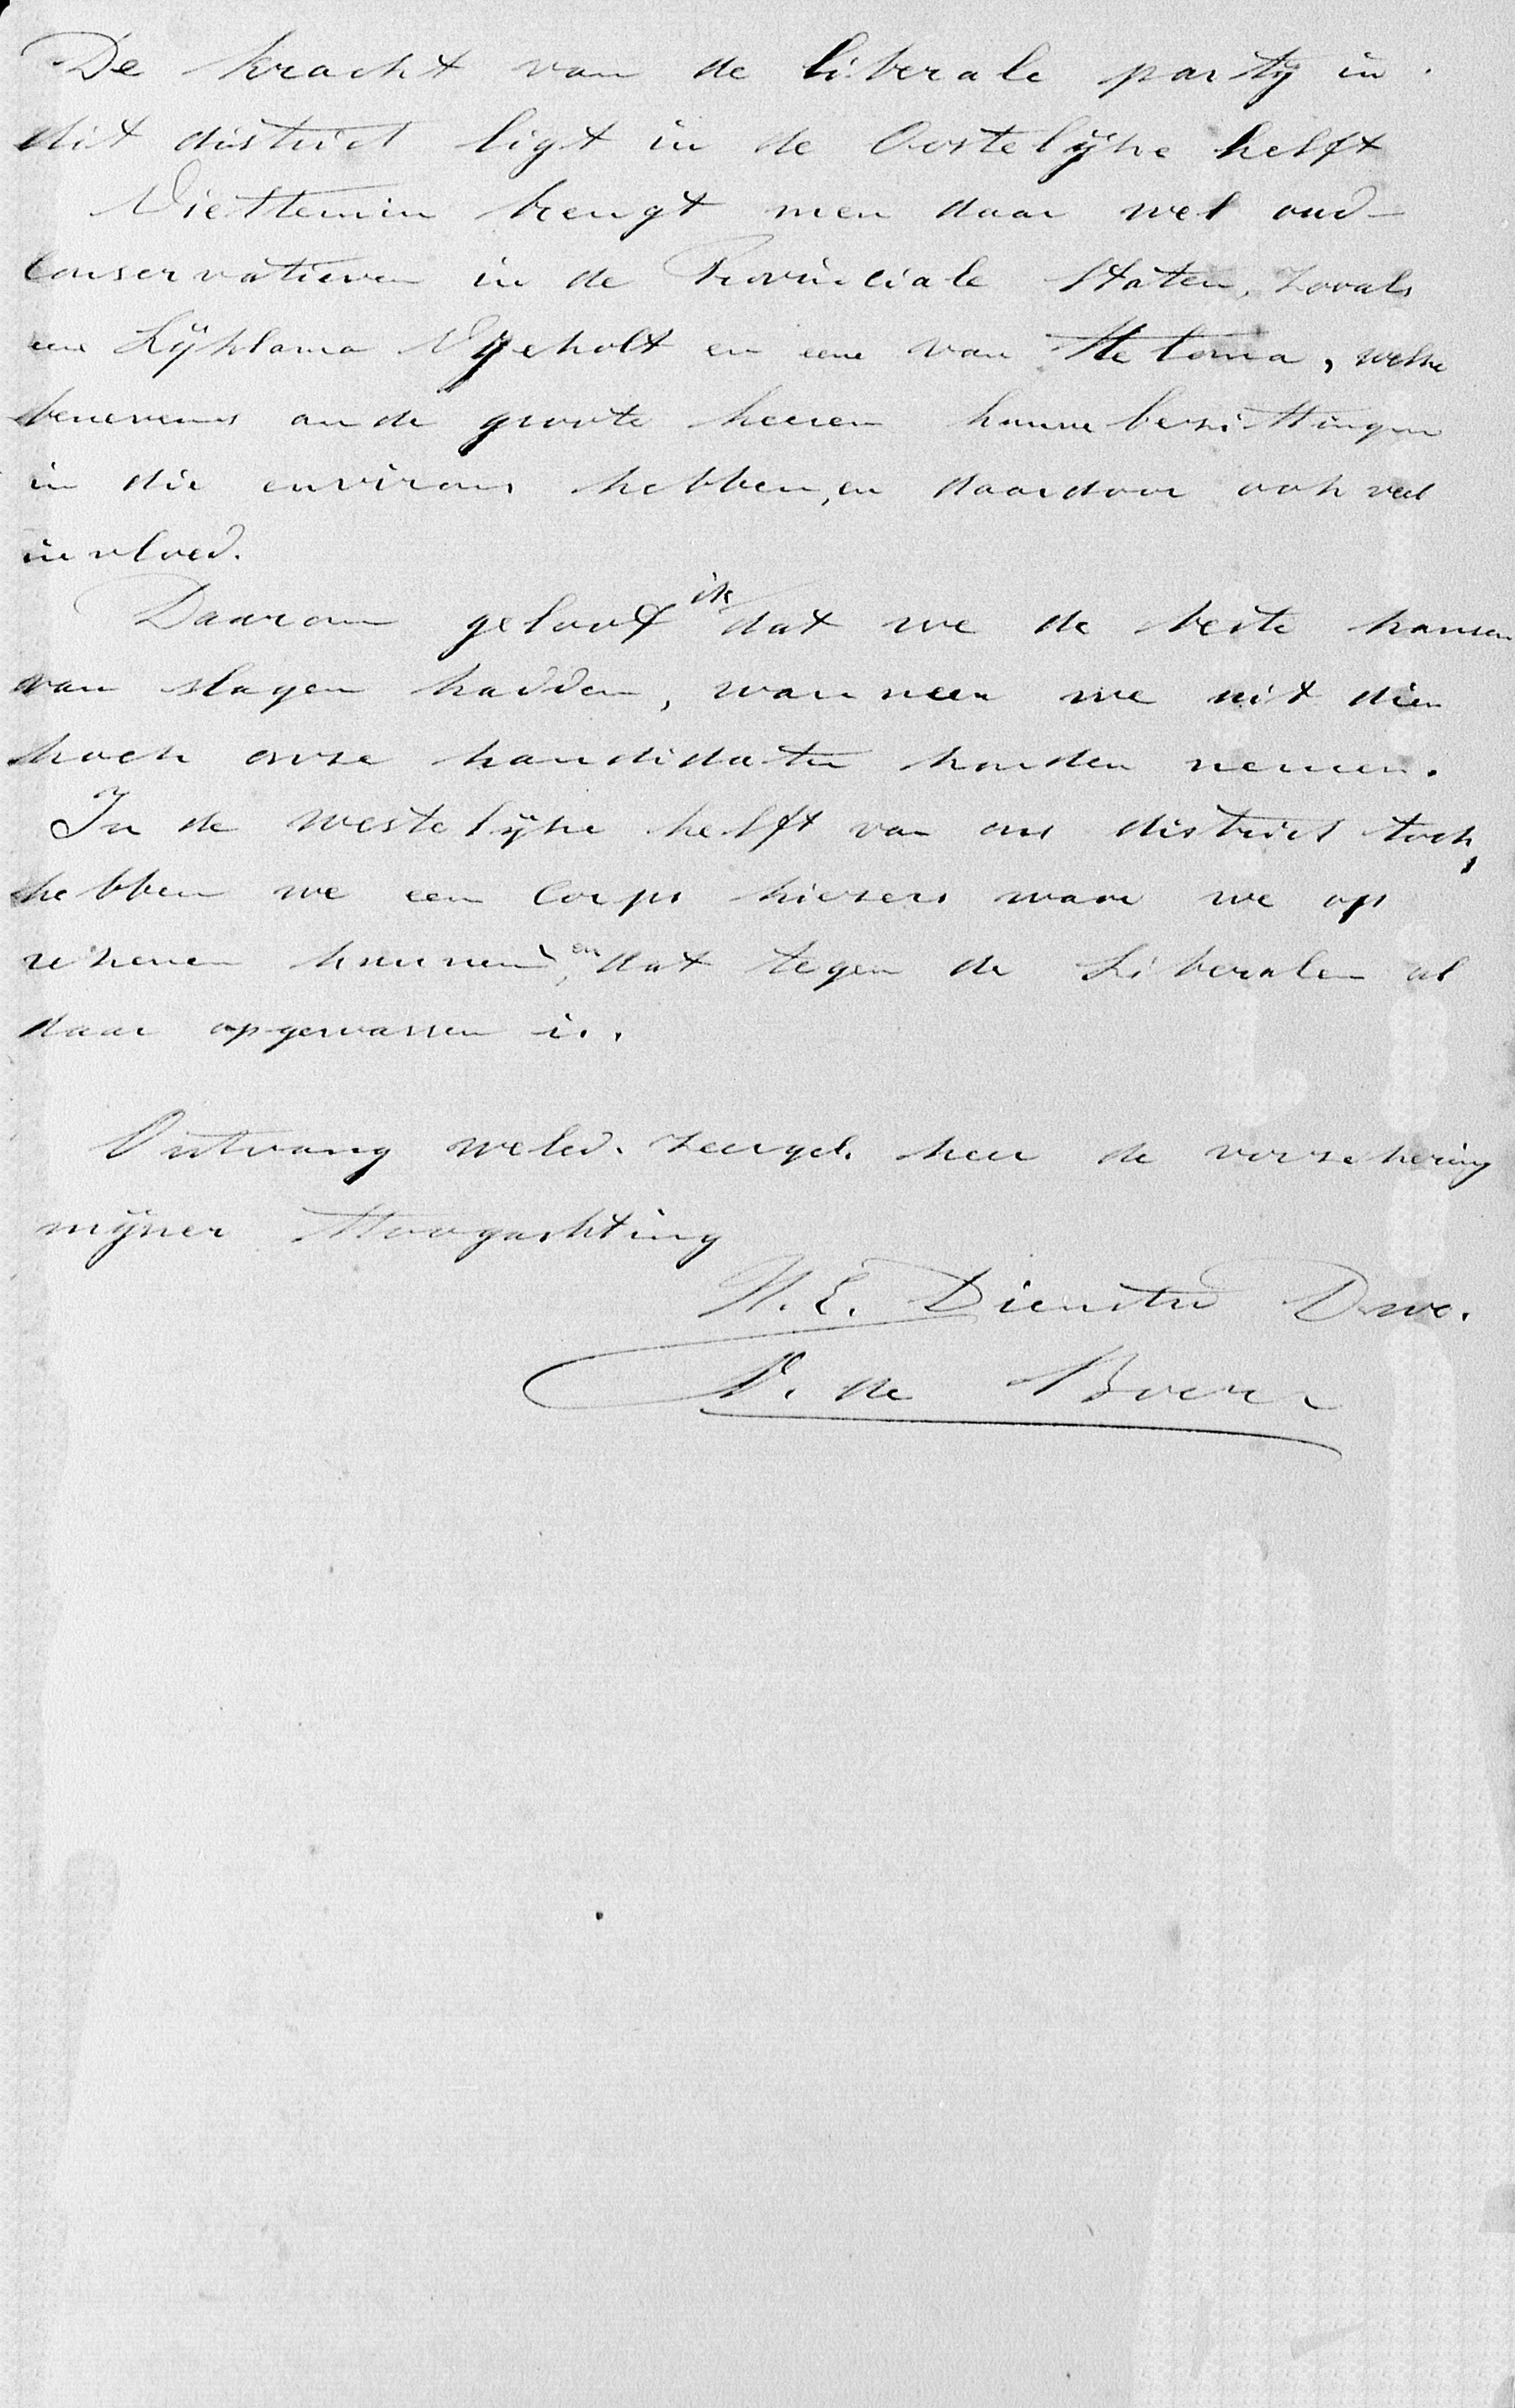 De kracht van de liberale partij in
dit district ligt in de Oostelijke helft
Niettemin brengt men daar wel oud-
conservatieven in de Provinciale Staten, zooals
een Lijklama Nijeholt en eene van Heloma, welke
benevens ande groote heeren hunne bezittingen
in die environs hebben, en daardoor ook veel
invloed.
Daarom geloof ik dat we de beste kansen
van slagen hadden, wanneer we uit dien
hoek onze kandidaten konden nemen.
In de westelijke helft van ons district toch,
hebben we een Corps kiezers waar we op
rekenen kunnen, en dat tegen de Liberalen al
daar opgewassen is.
Ontvang weled. zeergel. heer de verzekering
mijner Hoogachting
U.E. Dienstw Dwe.
de Boer